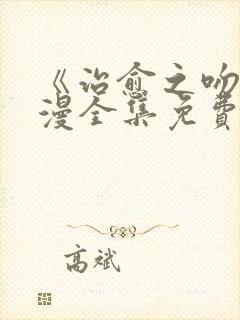 《治愈之吻
漫全集免费
高斌